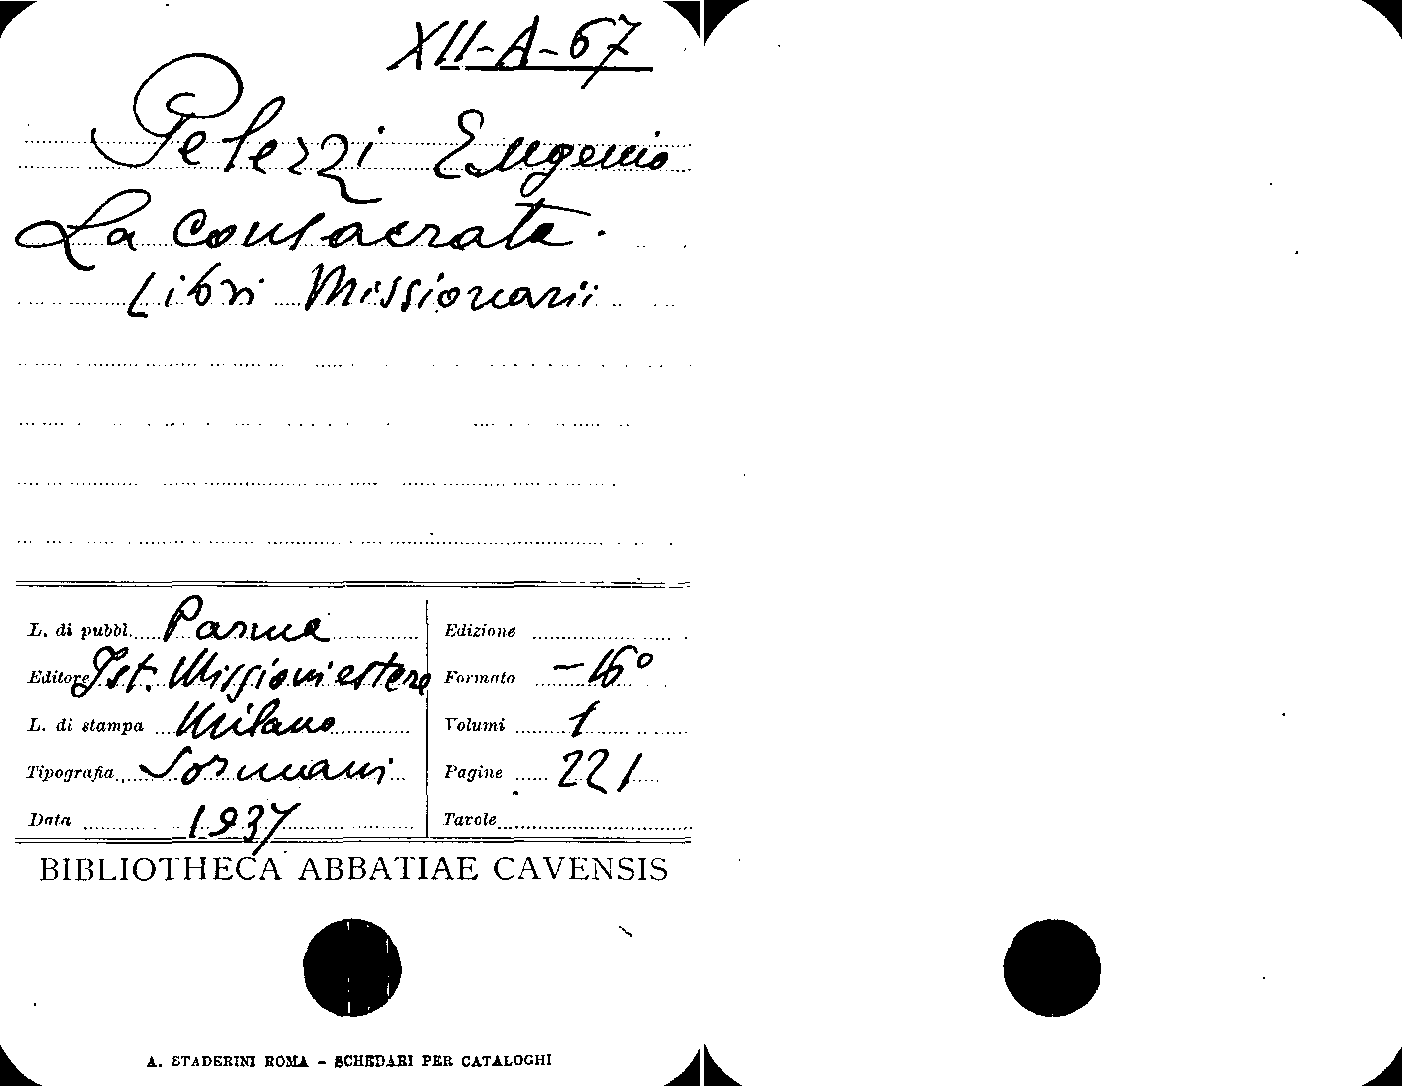 XII-A-67
Pelezzi Eugenio
La consacrata.
Libri Missionarii
L. di pubbl. Parma
Edizione
Editore Ist. Missioni estere
Formato -16°
L. di stampa Milano
Volumi 1
Tipografia Sormani
Pagine 221
Data 1937
Tavole
BIBLIOTHECA ABBATIAE CAVENSIS
A. STADERINI ROMA - SCHEDARI PER CATALOGHI